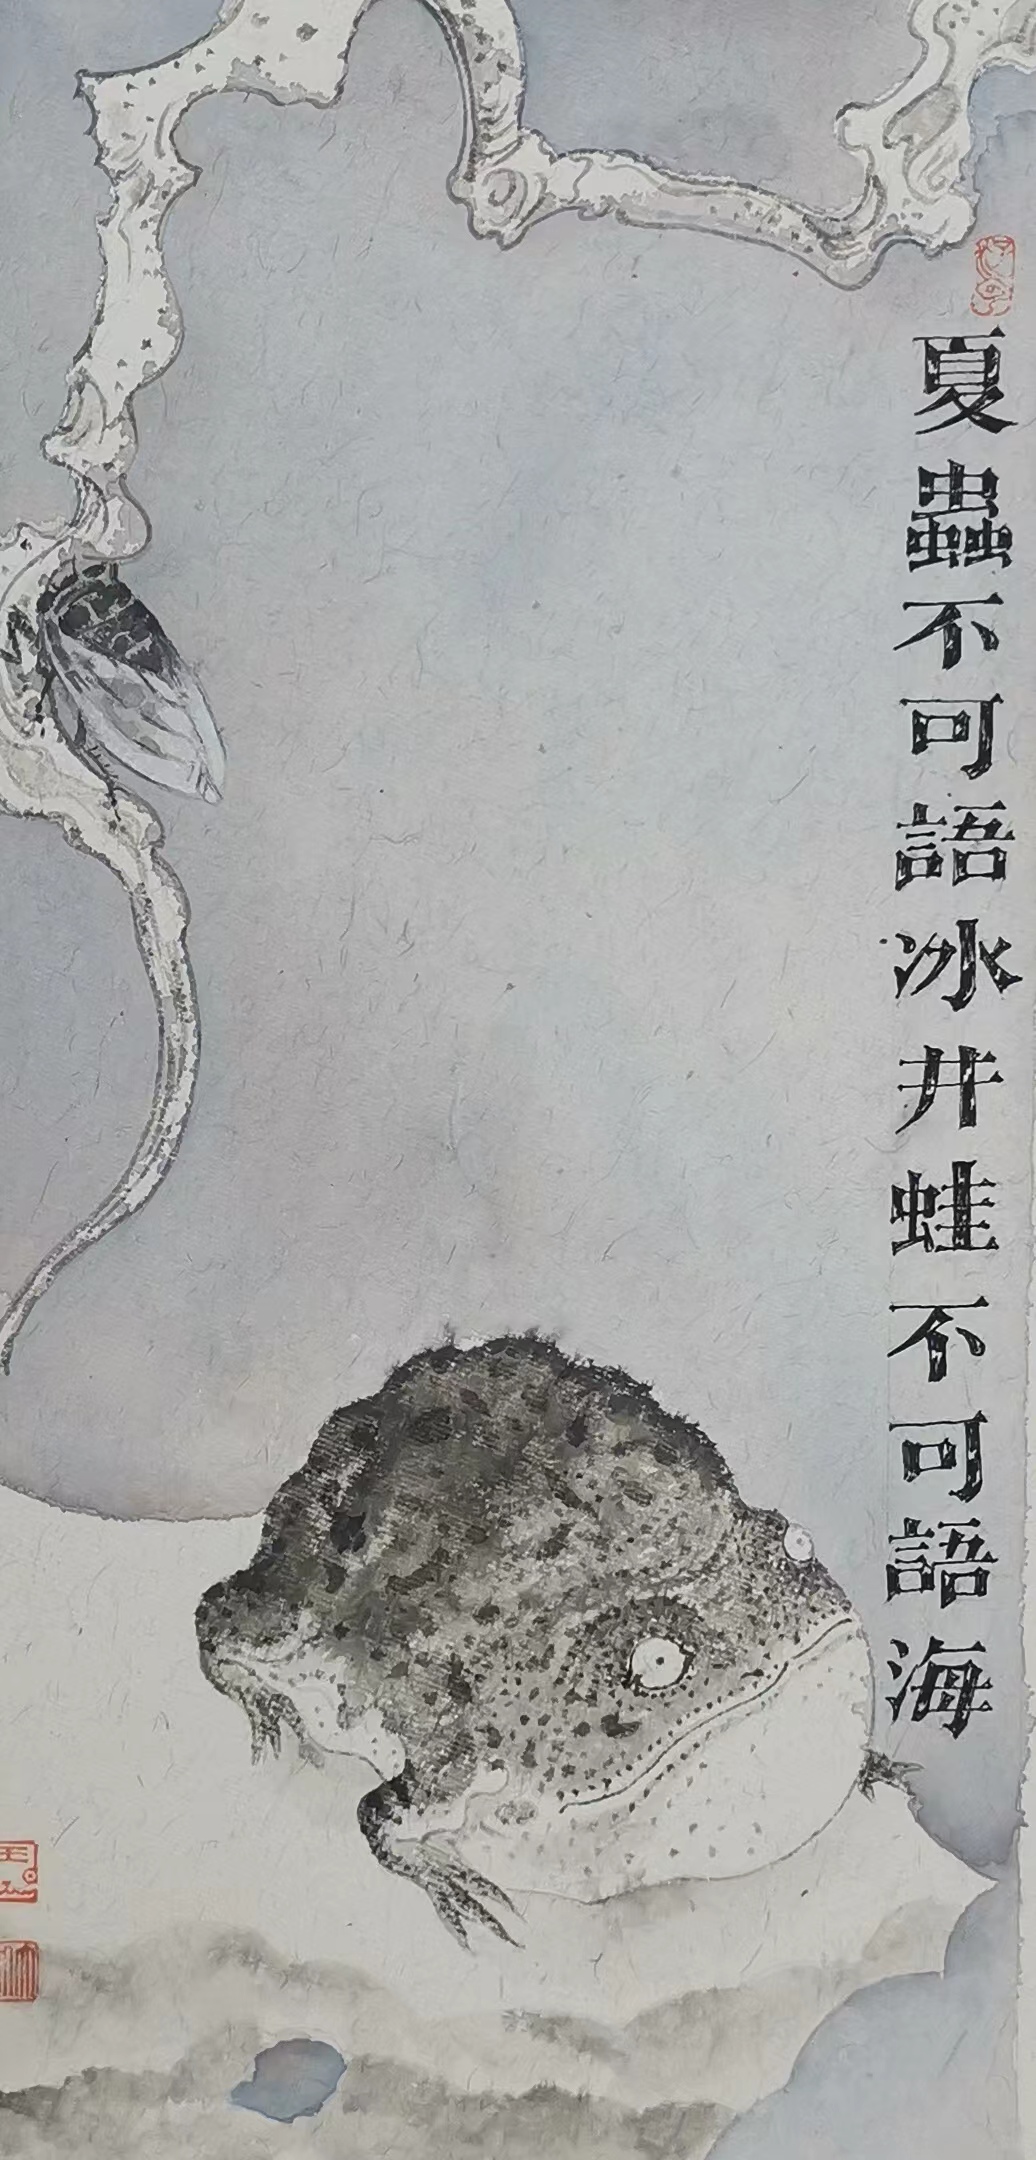 夏蟲不可語冰井蛙不可語海